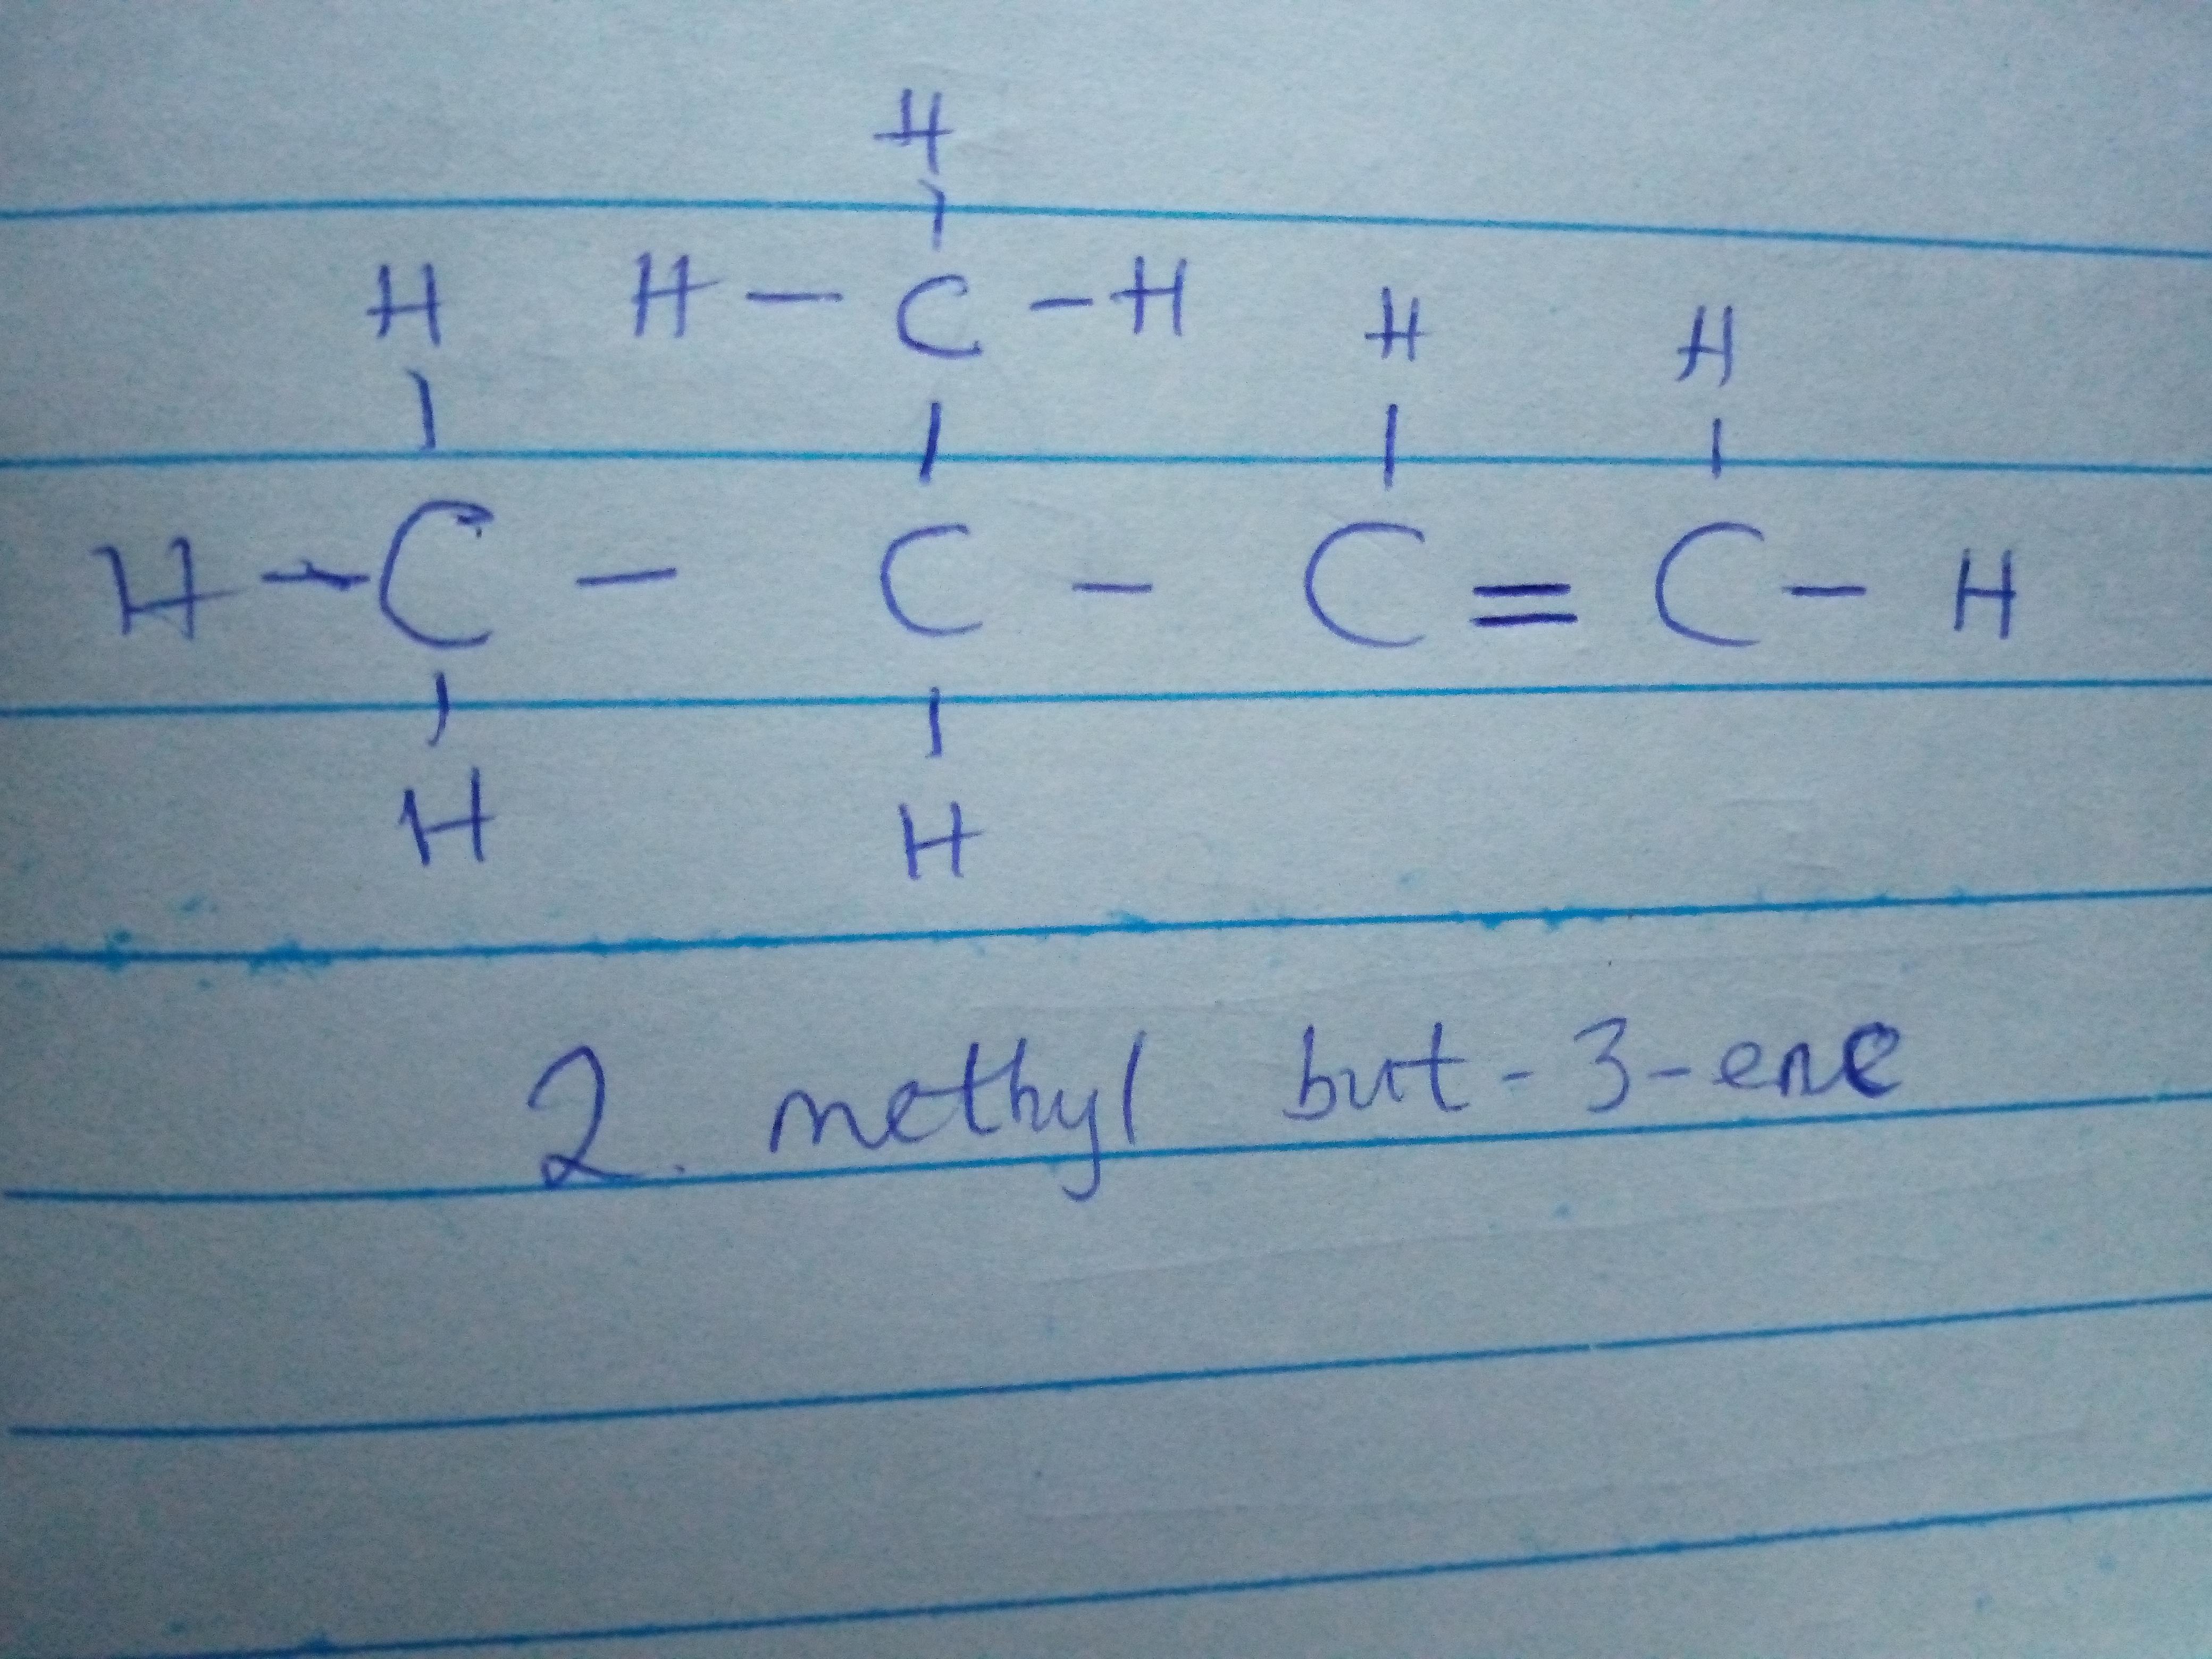 H
H H - C - H H H
H - C - C - C = C - H
H H
2. methyl but-3-ene